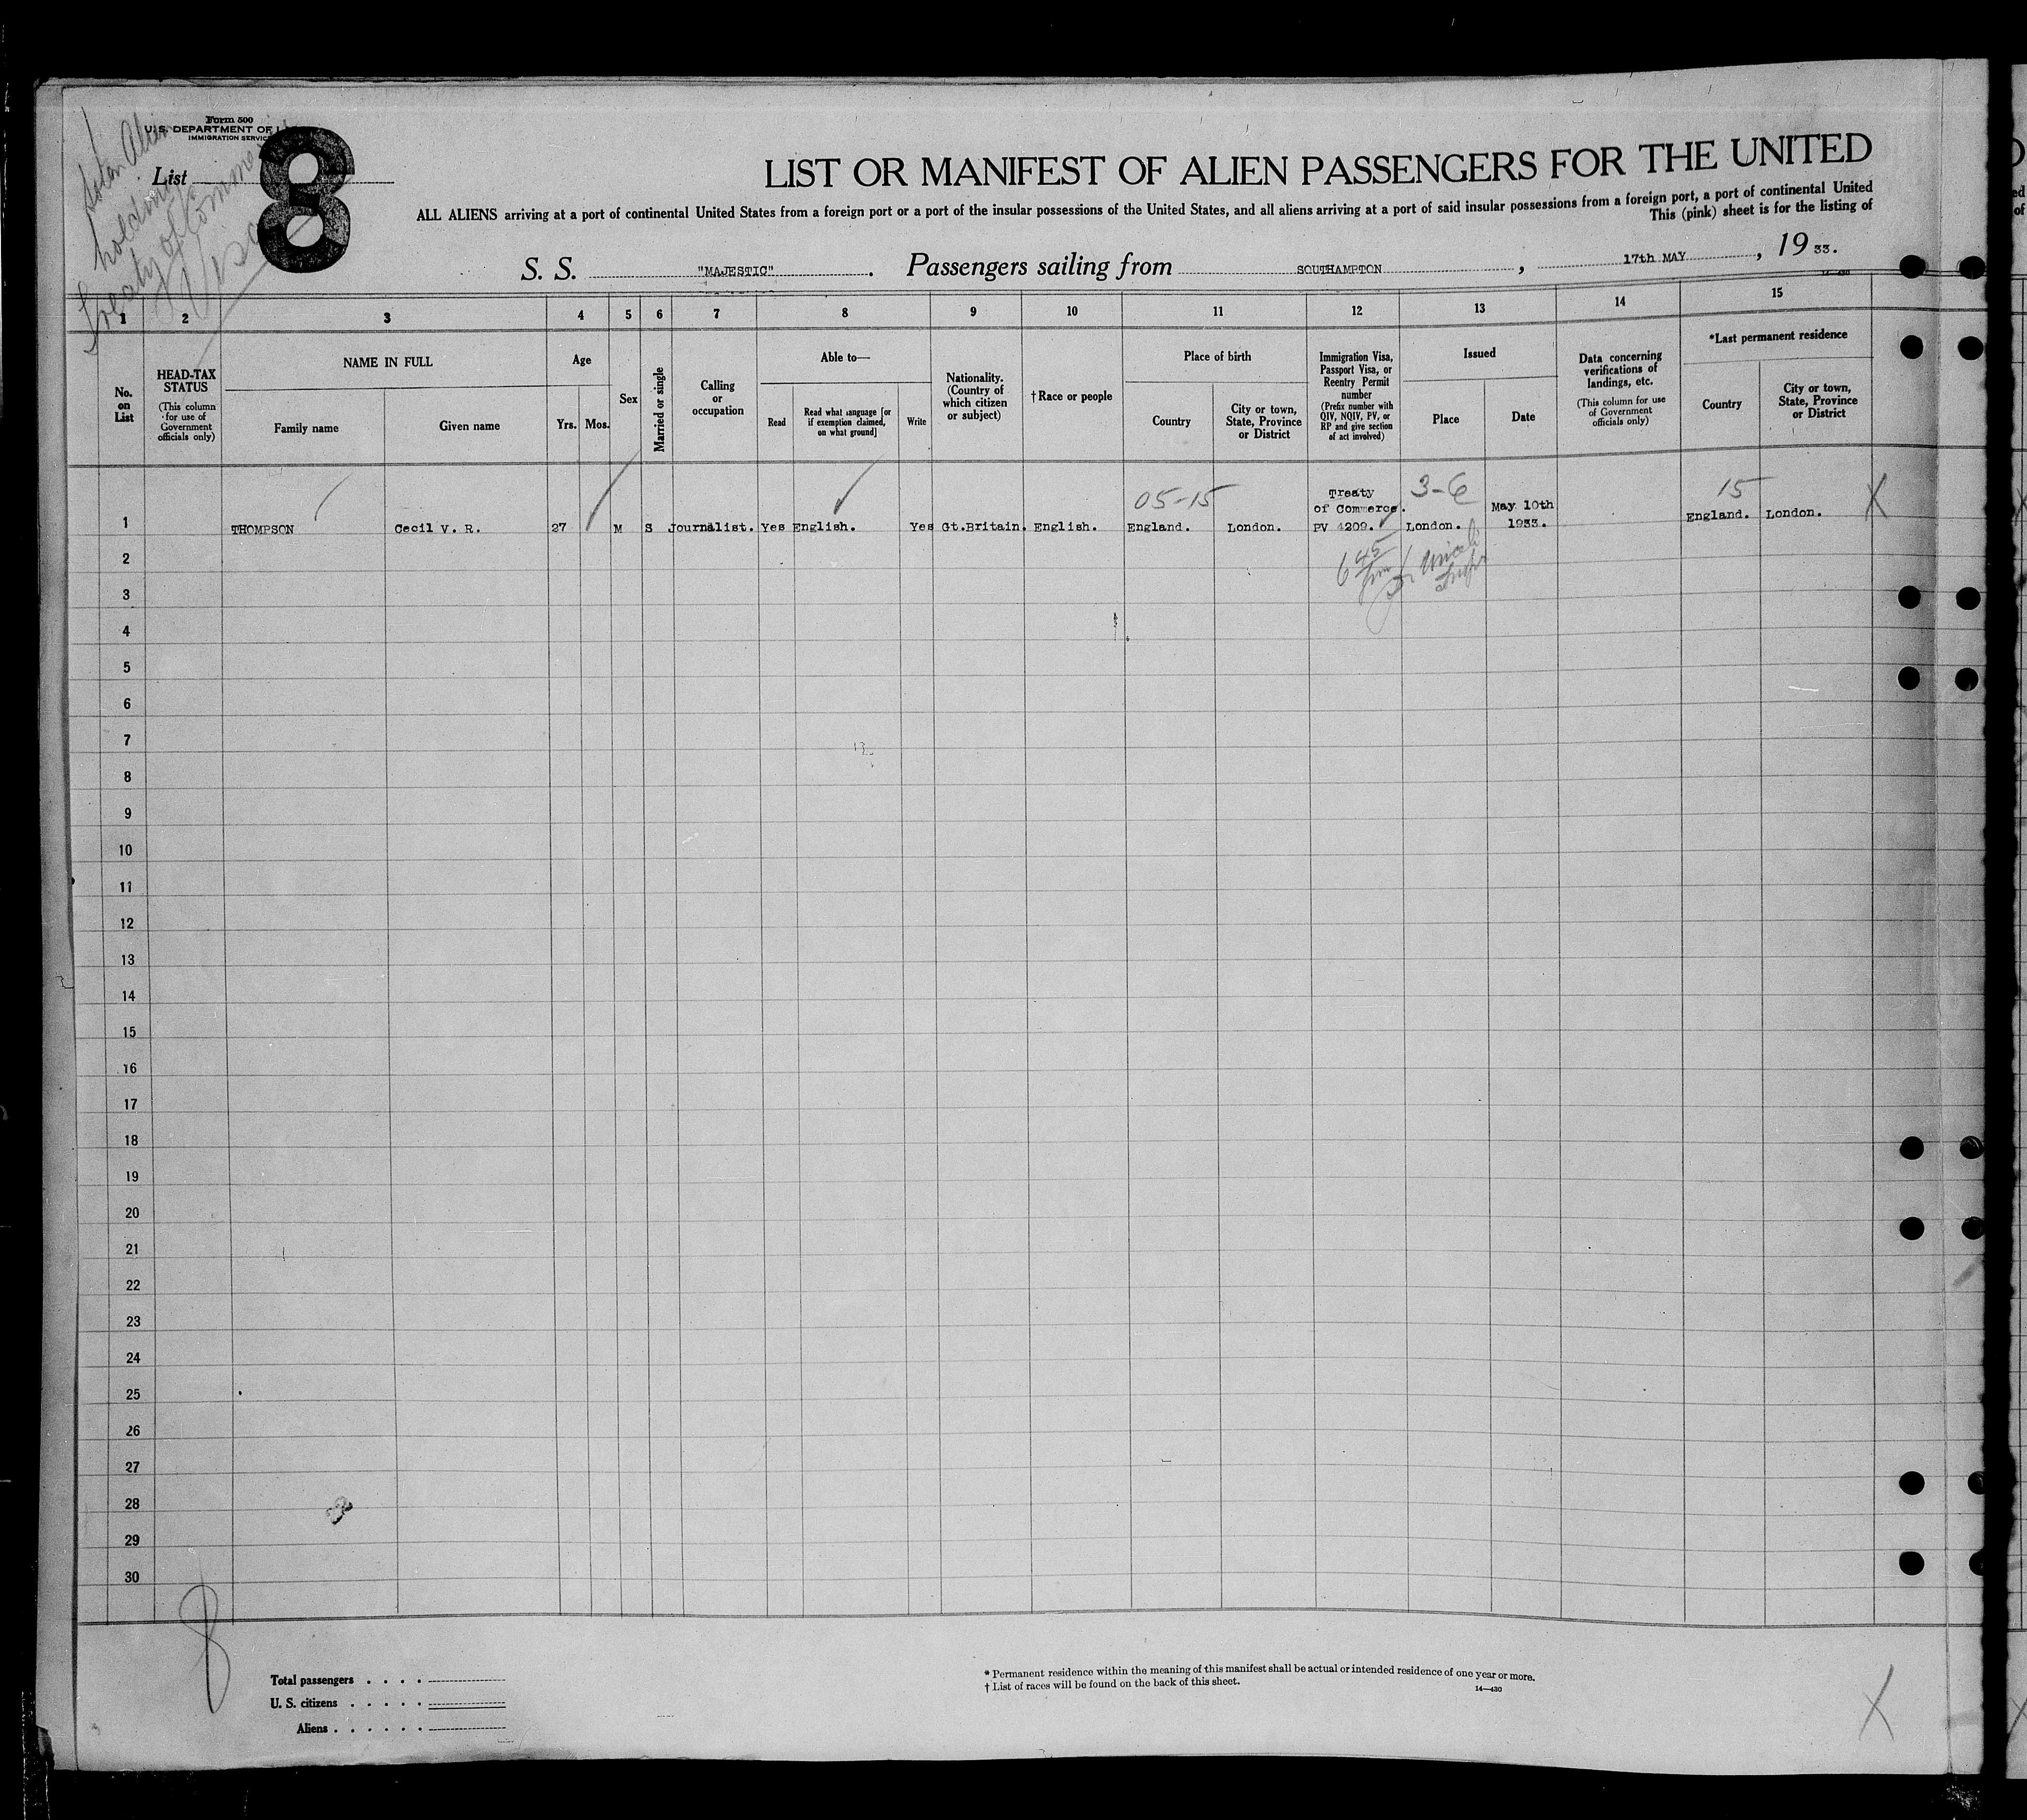 Form 500
U. S. DEPARTMENT OF
IMMIGRATION SERVICE
List
8
Alien
holding
Treaty of Commerce
Visa
LIST OR MANIFEST OF ALIEN PASSENGERS FOR THE UNITED
ALL ALIENS arriving at a port of continental United States from a foreign port or a port of the insular possessions of the United States, and all aliens arriving at a port of said insular possessions from a foreign port, a port of continental United
This (pink) sheet is for the listing of
S. S. "MAJESTIC". Passengers sailing from SOUTHAMPTON, 17th MAY, 19 33.
14-430
1 2 3 4 5 6 7 8 9 10 11 12 13 14 15
No. on List
HEAD-TAX STATUS
(This column for use of Government officials only)
NAME IN FULL
Family name
Given name
Age
Yrs. Mos.
Sex
Married or single
Calling or occupation
Able to—
Read
Read what language [or if exemption claimed, on what ground]
Write
Nationality. (Country of which citizen or subject)
†Race or people
Place of birth
Country
City or town, State, Province or District
Immigration Visa, Passport Visa, or Reentry Permit number
(Prefix number with QIV, NQIV, PV, or RP and give section of act involved)
Issued
Place
Date
Data concerning verifications of landings, etc.
(This column for use of Government officials only)
*Last permanent residence
Country
City or town, State, Province or District
05-15 3-6 15
1 THOMPSON Cecil V. R. 27 M S Journalist. Yes English. Yes Gt.Britain. English. England. London. Treaty of Commerce. PV 4209. London. May 10th 1933. England. London. X
6 45
2
3
4
5
6
7
8
9
10
11
12
13
14
15
16
17
18
19
20
21
22
23
24
25
26
27
28
29
30
8
Total passengers . . . .
U. S. citizens . . . . .
Aliens . . . . . .
* Permanent residence within the meaning of this manifest shall be actual or intended residence of one year or more.
† List of races will be found on the back of this sheet.
14—430
X